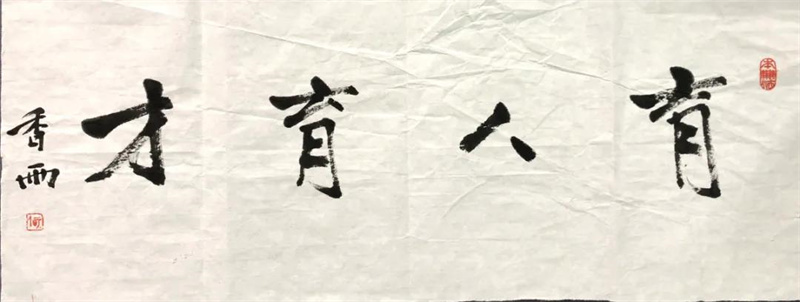 育人育才
香雨